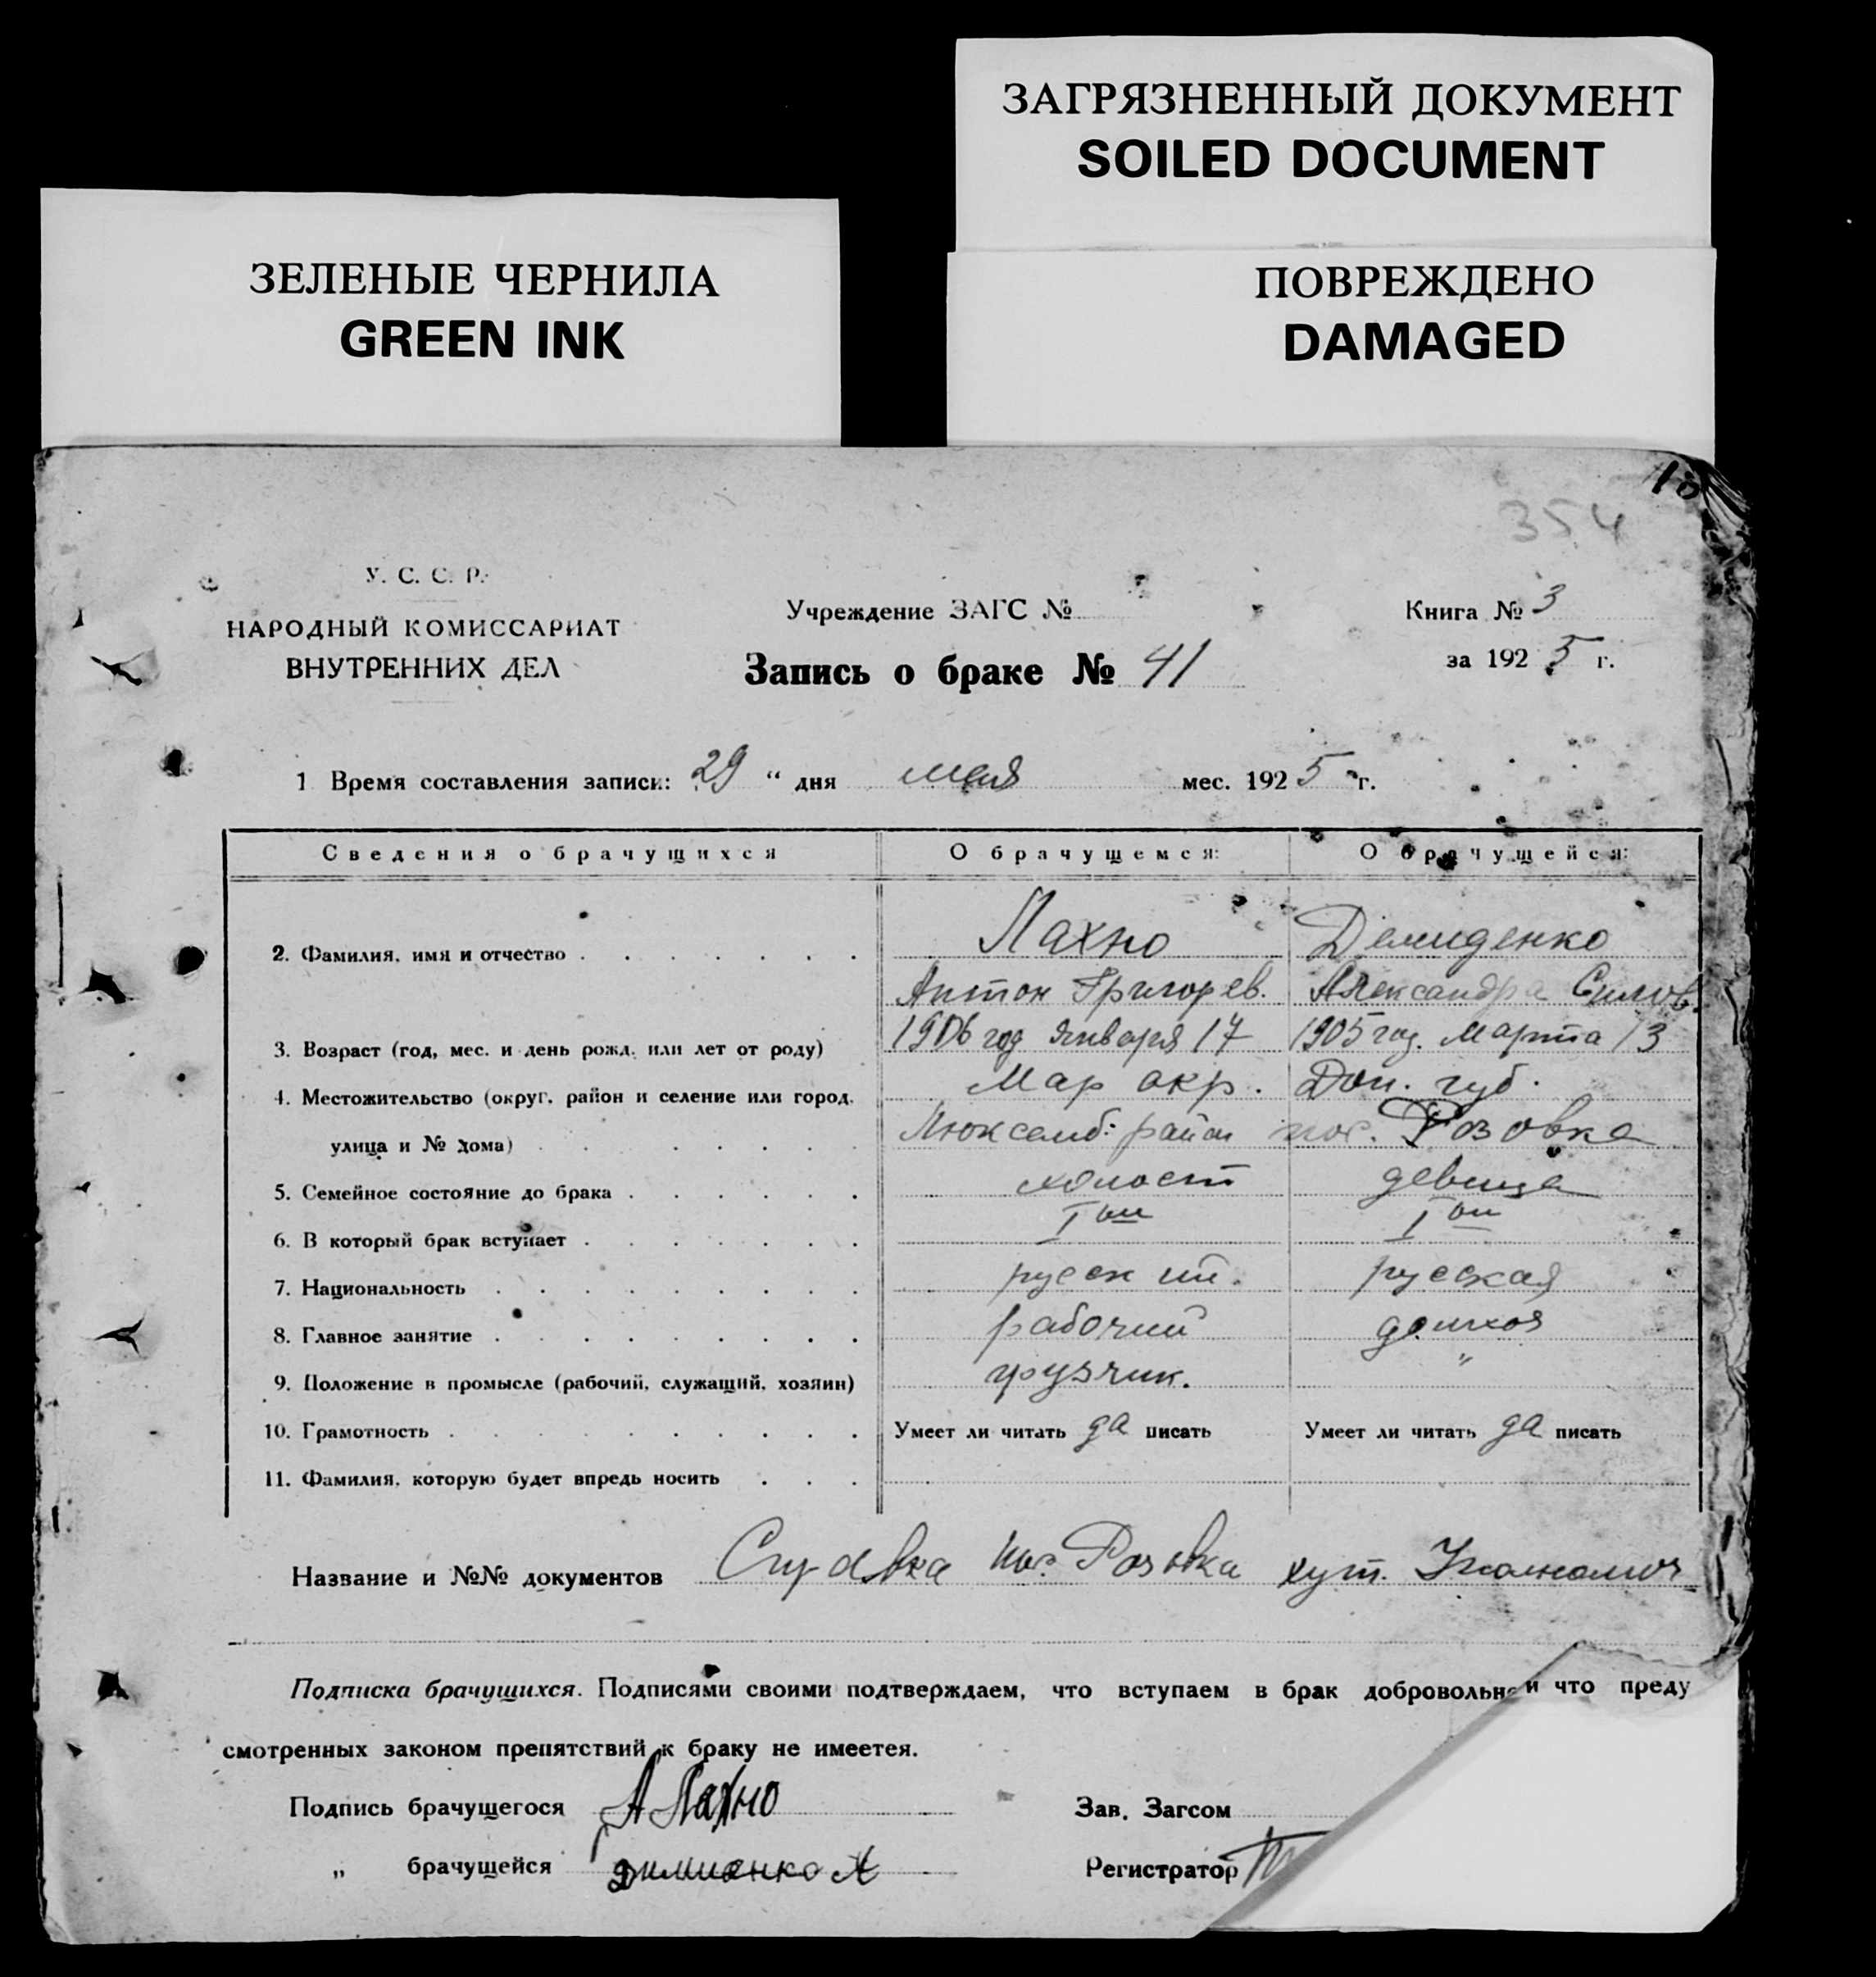 ЗАГРЯЗНЕННЫЙ ДОКУМЕНТ
SOILED DOCUMENT
ЗЕЛЕНЫЕ ЧЕРНИЛА
GREEN INK
ПОВРЕЖДЕНО
DAMAGED
354
У. С. С. Р.
НАРОДНЫЙ КОМИССАРИАТ
ВНУТРЕННИХ ДЕЛ
Учреждение ЗАГС №
Запись о браке № 41
Книга № 3
за 1925 г.
1 Время составления записи: 29 " дня мая мес. 1925 г.
Сведения о брачущихся О брачущемся: О брачущейся:
2. Фамилия, имя и отчество Лахно Демиденко
Антон Григорев. Александра Силов.
3. Возраст (год, мес. и день рожд. или лет от роду) 1906 год января 17 1905 год. Марта 13
4. Местожительство (округ, район и селение или город, Мар окр. Дон. губ.
улица и № дома) Люксемб: район пос. Розовка
5. Семейное состояние до брака холост девица
6. В который брак вступает I ый I ый
7. Национальность русский. русская
8. Главное занятие рабочий домхоз
9. Положение в промысле (рабочий, служащий, хозяин) грузчик. "
10. Грамотность Умеет ли читать да писать Умеет ли читать да писать
11. Фамилия, которую будет впредь носить
Название и №№ документов пос. Розовка хут.
Подписка брачущихся. Подписями своими подтверждаем, что вступаем в брак добровольно и что преду
смотренных законом препятствий к браку не имеетея.
Подпись брачущегося А Лахно Зав. Загсом
" брачущейся Регистратор